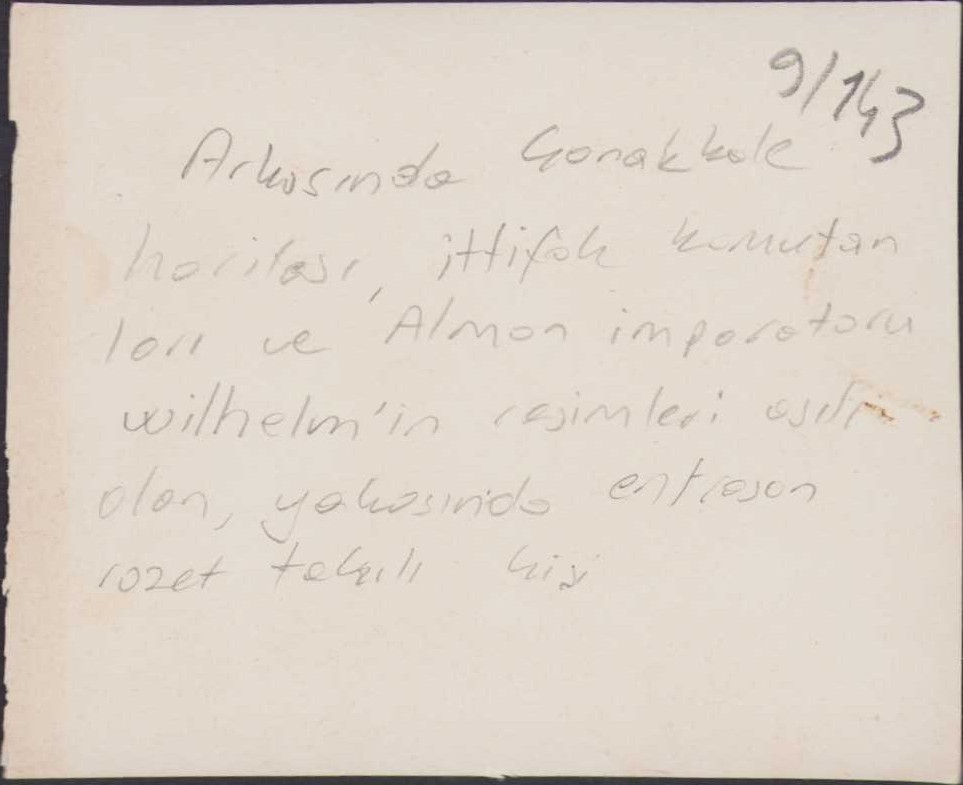 9/143
Arkasında Çanakkale
haritası, ittifak komutan
ları ve Alman imparatoru
wilhelm'in resimleri asılı
olan, yakasında entrasan
rozet takılı kişi